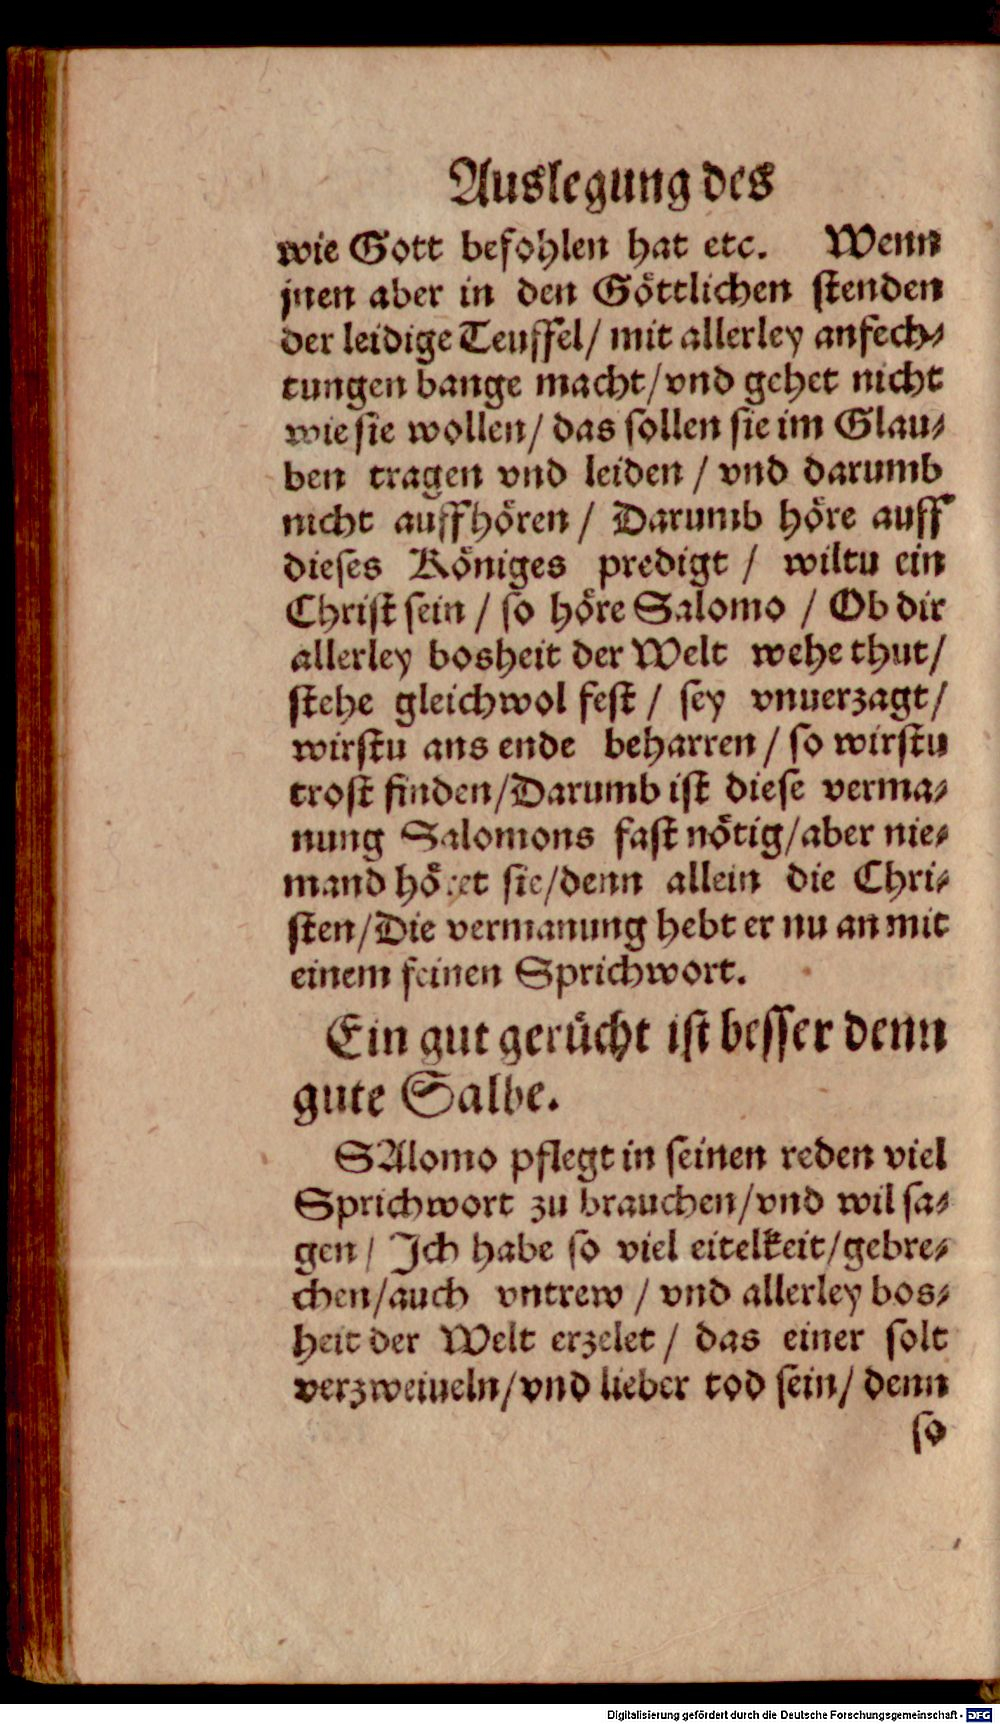 Auslegung des
wie Gott befohlen hat etc. Wenn
jnen aber in den Göttlichen stenden
der leidige Teuffel/ mit allerley anfech-
tungen bange macht/vnd gehet nicht
wie sie wollen/ das sollen sie im Glau-
ben tragen vnd leiden / vnd darumb
nicht auffhören / Darumb höre auff
dieses Königes predigt / wiltu ein
Christ sein / so höre Salomo / Ob dir
allerley bosheit der Welt wehe thut/
stehe gleichwol fest / sey vnuerzagt/
wirstu ans ende beharren / so wirstu
trost finden/Darumb ist diese verma-
nung Salomons fast nötig/aber nie-
mand höret sie/denn allein die Chri-
sten/Die vermanung hebt er nu an mit
einem feinen Sprichwort.
Ein gut gerücht ist besser denn
gute Salbe.
SAlomo pflegt in seinen reden viel
Sprichwort zu brauchen/vnd wil sa-
gen/ Ich habe so viel eitelkeit/gebre-
chen/auch vntrew / vnd allerley bos-
heit der Welt erzelet / das einer solt
verzweiueln/vnd lieber tod sein/ denn
so
Digitalisierung gefördert durch die Deutsche Forschungsgemeinschaft - DFG